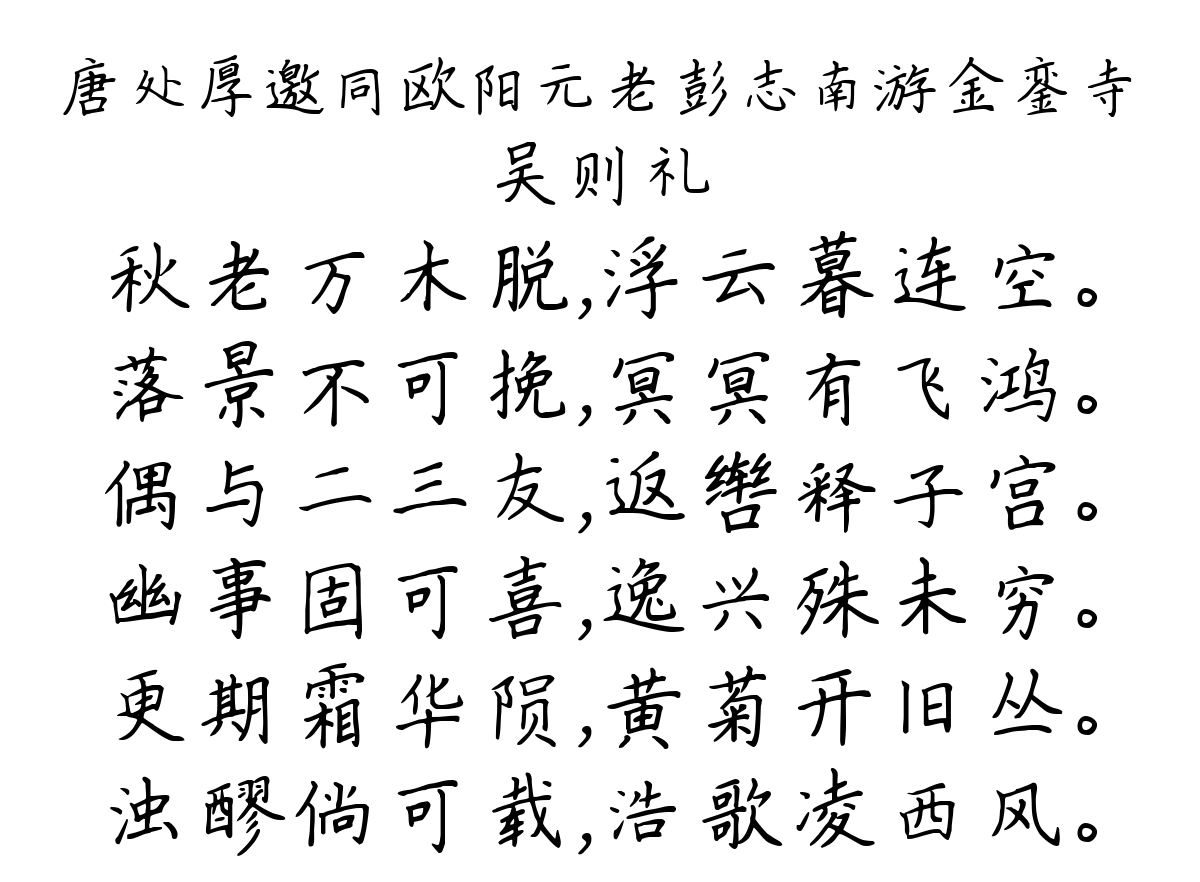 唐处厚邀同欧阳元老彭志南游金銮寺
吴则礼
秋老万木脱,浮云暮连空。
落景不可挽,冥冥有飞鸿。
偶与二三友,返辔释子宫。
幽事固可喜,逸兴殊未穷。
更期霜华陨,黄菊开旧丛。
浊醪倘可载,浩歌凌西风。